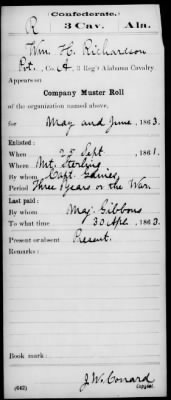 Confederate.
R 3 Cav. Ala.
Wm. H. Richardson
Pvt., Co. A, 3 Reg't Alabama Cavalry
Appears on
Company Muster Roll
of the organization named above,
for May and June, 1863.
Enlisted:
When 25 Sept, 1861.
Where Mt. Sterling
By whom Capt. Gaines
Period Three years or the War.
Last paid:
By whom Maj. Gibbons
To what time 30 Apl, 1863.
Present or absent Present.
Remarks:
Book mark:
J. W. Conrard
(642) Copyist.